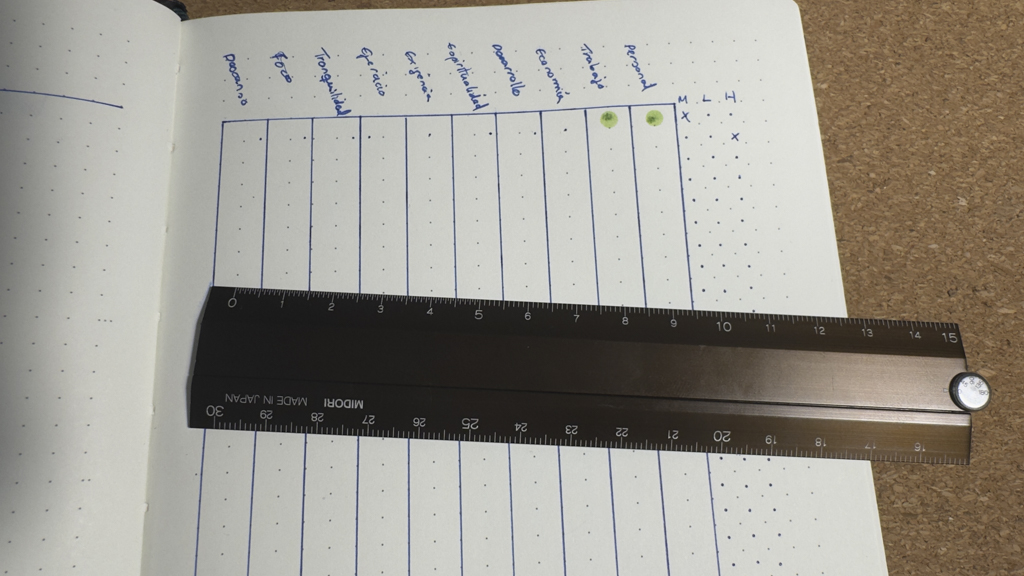 Descanso
Foco
Tranquilidad
Ejercicio
Energía
Espiritualidad
Desarrollo
Economía
Trabajo
Personal
M L I
x
x
0 1 2 3 4 5 6 7 8 9 10 11 12 13 14 15
MIDORI MADE IN JAPAN
30 29 28 27 26 25 24 23 22 21 20 19 18 17 16